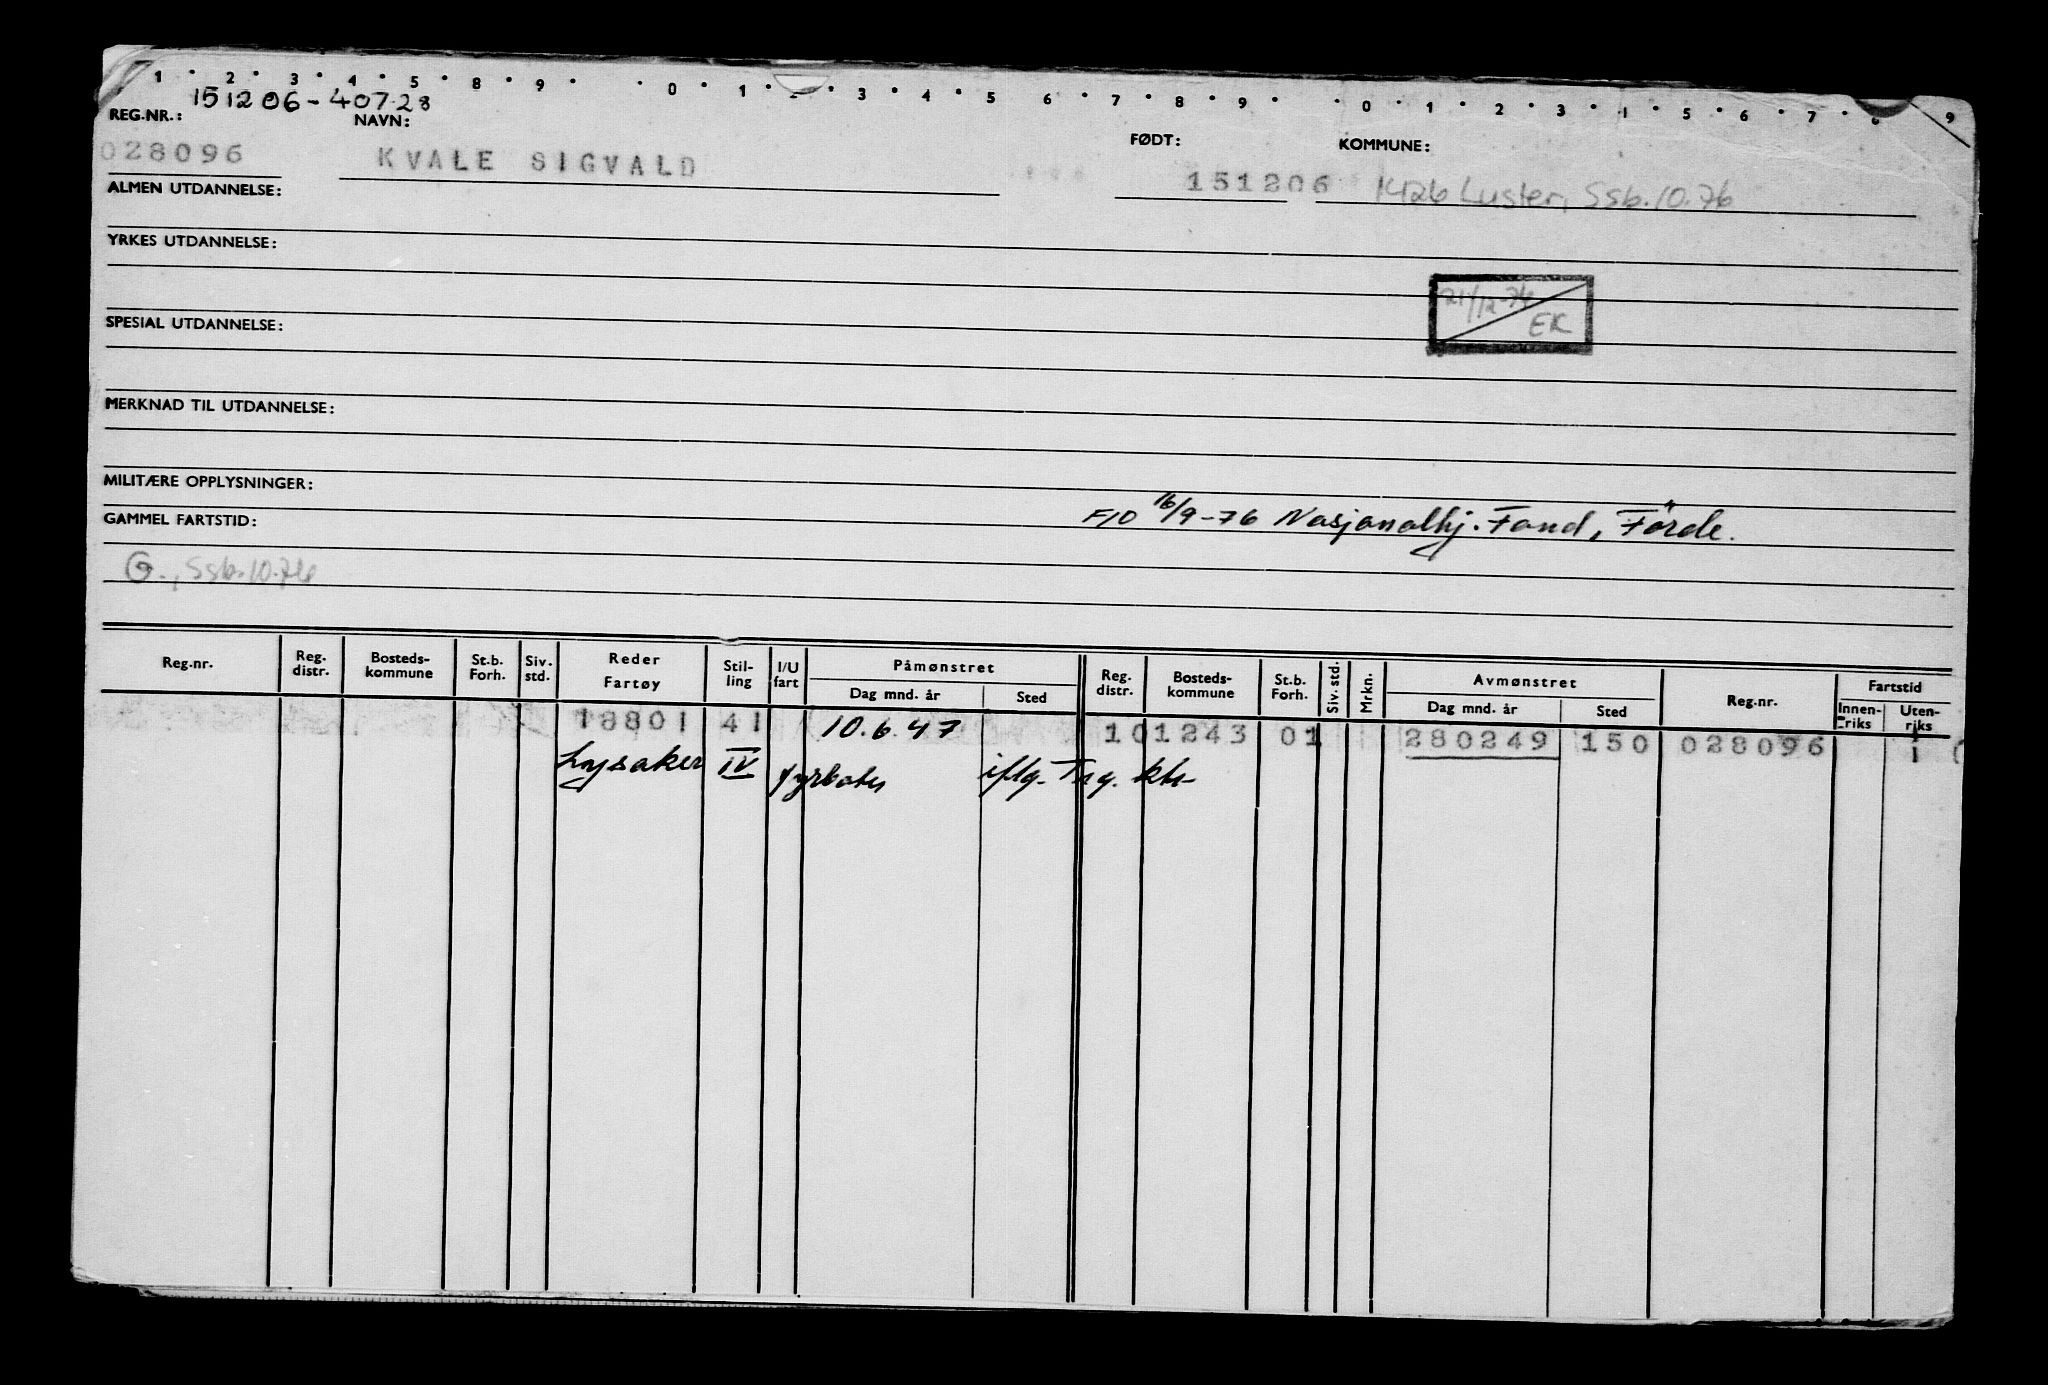 1 • 2 • 3 • 4 • 5 • 8 • 9 • • 0 • 1 • • 3 • 4 • 5 6 • 7 • 8 • 9 • • 0 • 1 • 2 • 3 • 1 • 5 • 6 • 7 • 8 9
151206-40728
REG.NR.: NAVN: FØDT: KOMMUNE:
028096 KVALE SIGVALD 151206 1426 Luster, Ssb.10.76
ALMEN UTDANNELSE:
YRKES UTDANNELSE:
21/12-76
EK
SPESIAL UTDANNELSE:
MERKNAD TIL UTDANNELSE:
MILITÆRE OPPLYSNINGER:
GAMMEL FARTSTID: F/O 16/9-76 Nasjonalhj. Fond, Förde.
G., Ssb.10.76
Reg.nr. Reg. distr. Bosteds-kommune St.b. Forh. Siv. std. Reder Fartøy Stil-ling I/U fart Påmønstret Dag mnd. år Sted Reg. distr. Bosteds-kommune St.b. Forh. Siv. std. Mrkn. Avmønstret Dag mnd. år Sted Reg.nr. Fartstid Innen-riks Uten-riks
18801 41 10.6.47 101243 01 280249 150 028096 1
Lysaker IV fyrbøter iflg. Trg. ktr